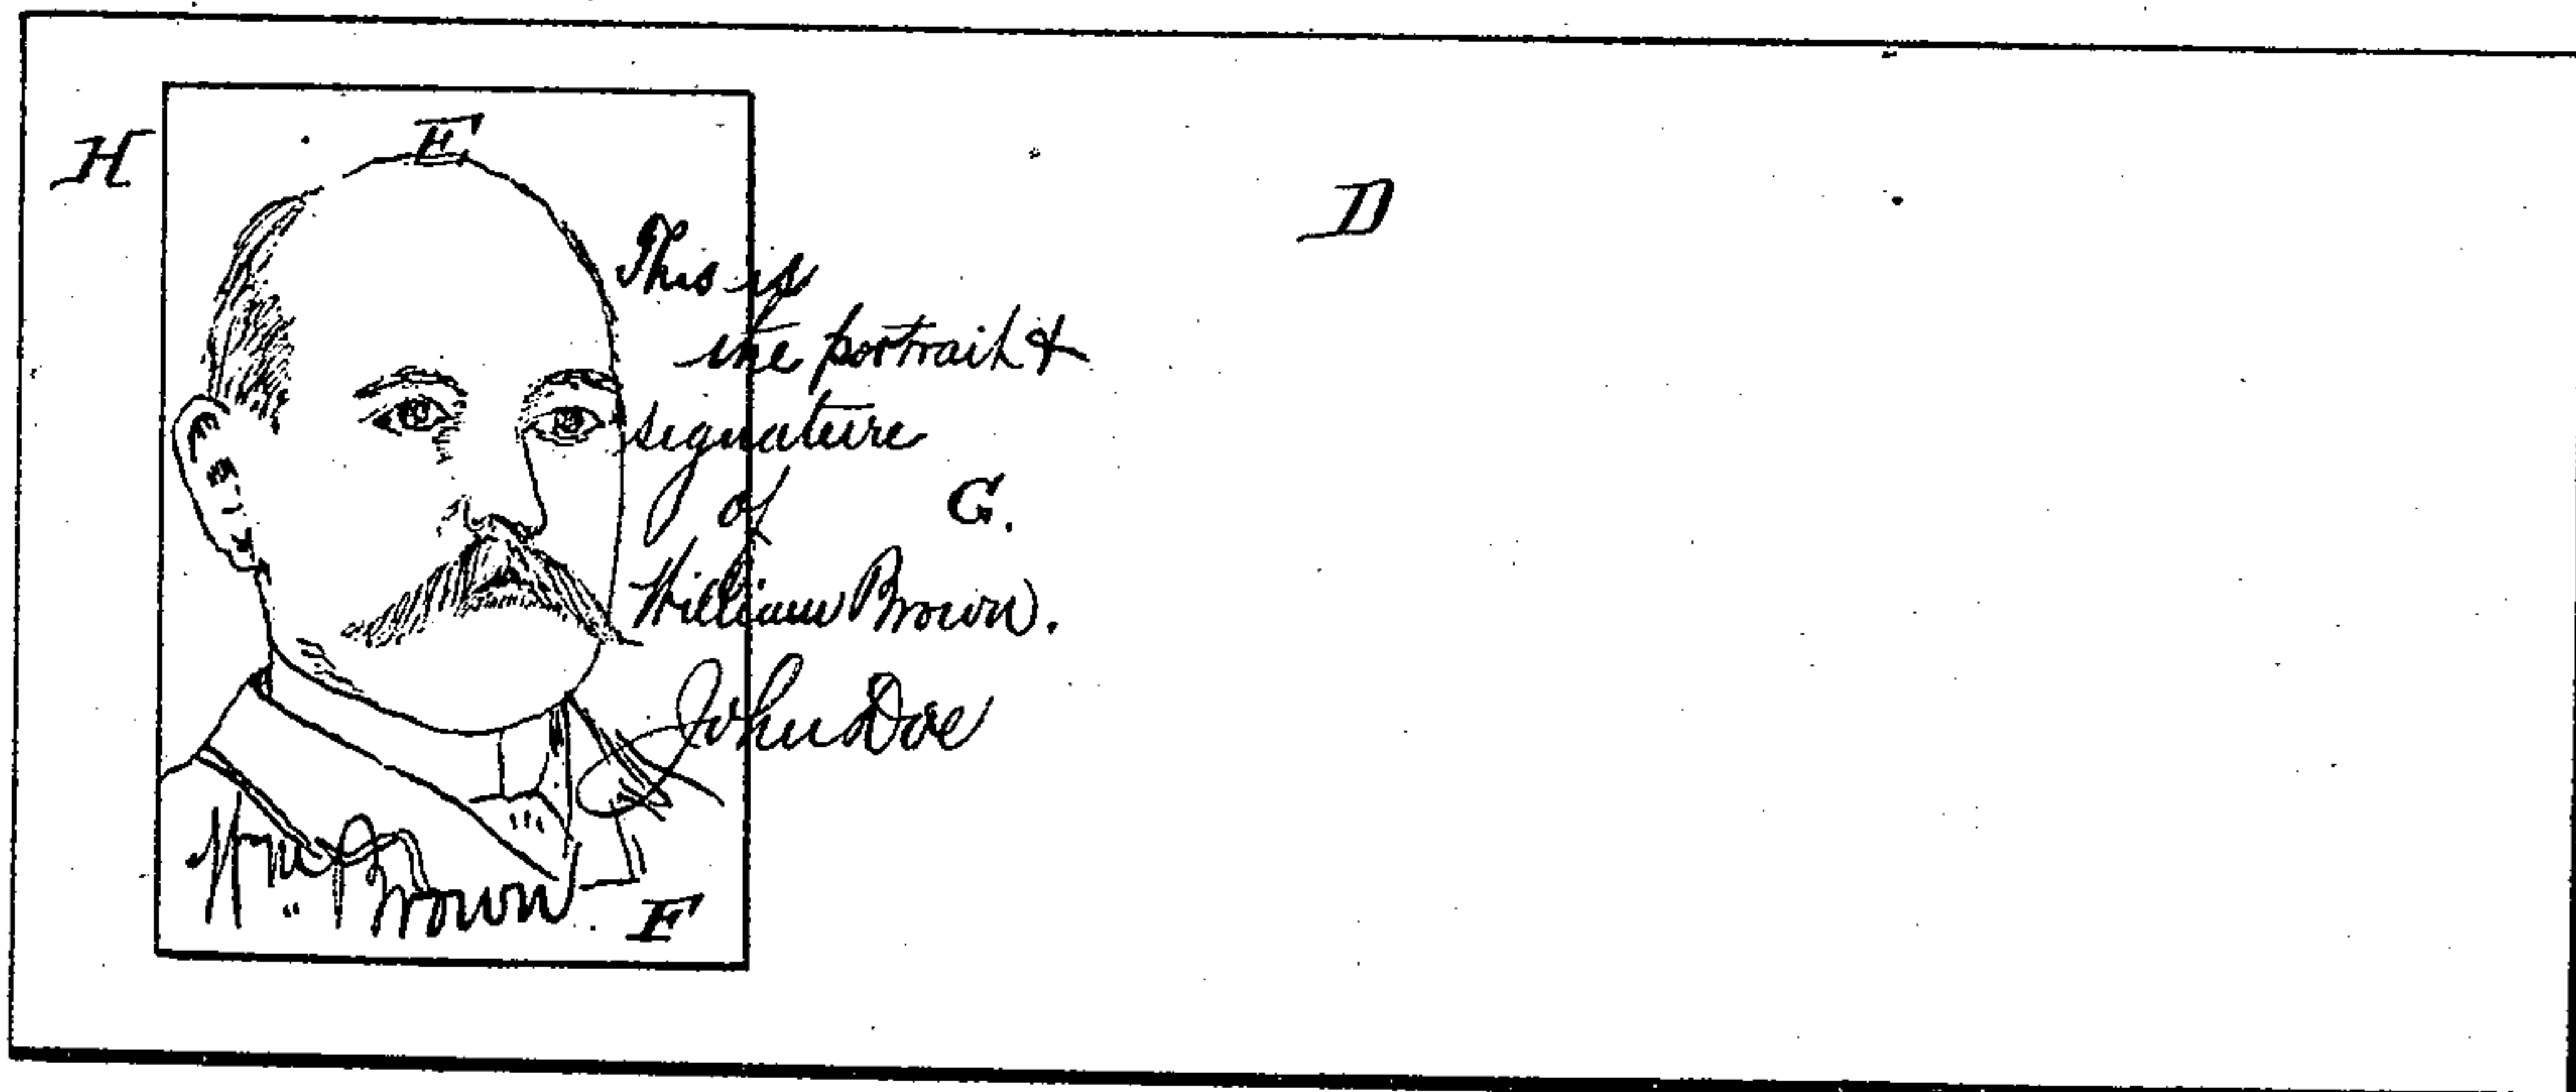 H
E.
D
This is
the portrait &
signature
of
G.
William Brown.
John Doe
Wm Brown
F